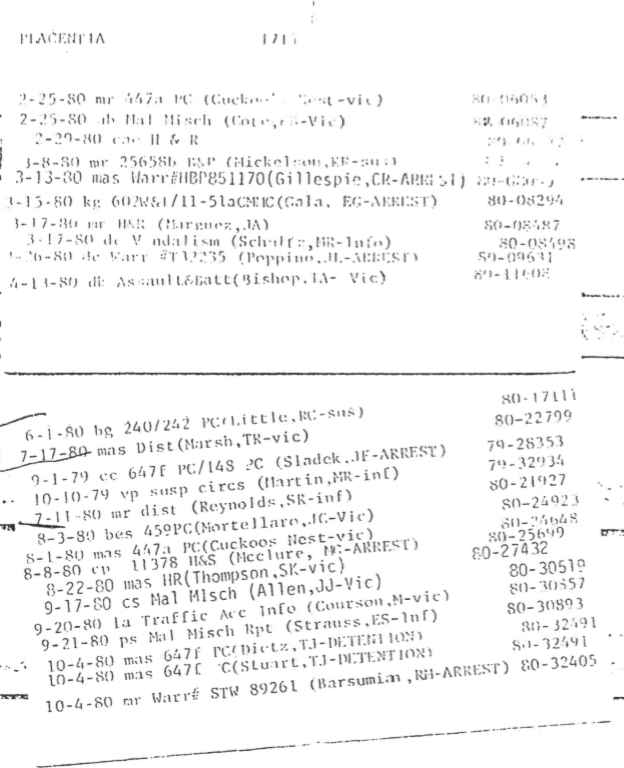 PLACENTIA 171
2-25-80 mr 447a PC (Cuckoo's Nest-vic) 80-06053
2-25-80 ab Mal Misch (Cote, -Vic) 80-06087
2-29-80 H & R
3-8-80 mr 25658b B&P (Mickelson,ER-sus)
3-13-80 mas Warr#HBP851170(Gillespie,CR-ARREST)
3-15-80 kg 602W&I/11-51aCMHC(Gala, EG-ARREST) 80-08294
3-17-80 mr H&R (Marquez,JA) 80-08487
3-17-80 dc Vandalism (Schultz,MR-Info) 80-08498
-26-80 dc Warr #T32235 (Poppino,JL-ARREST) 80-09631
4-13-80 db Assault&Batt(Bishop,TA- Vic) 80-11608
80-17111
6-1-80 bg 240/242 PC(Little,RC-sus) 80-22799
7-17-80 mas Dist(Marsh,TR-vic)
9-1-79 cc 647f PC/148 PC (Sladek,JF-ARREST) 79-28353
10-10-79 vp susp circs (Martin,MR-inf) 79-32934
7-11-80 mr dist (Reynolds,SR-inf) 80-21927
8-3-80 bes 459PC(Mortellaro,JC-Vic) 80-24923
8-1-80 mas 447a PC(Cuckoos Nest-vic) 80-24648
8-8-80 cp 11378 H&S (Mcclure, MG-ARREST) 80-25699
8-22-80 mas HR(Thompson,SK-vic) 80-27432
9-17-80 cs Mal Misch (Allen,JJ-Vic) 80-30519
9-20-80 la Traffic Acc Info (Courson,M-vic) 80-30557
9-21-80 ps Mal Misch Rpt (Strauss,ES-Inf) 80-30893
10-4-80 mas 647f PC(Dietz,TJ-DETENTION) 80-32491
10-4-80 mas 647f C(Stuart,TJ-DETENTION) 80-32491
10-4-80 mr Warr# STW 89261 (Barsumian,RH-ARREST) 80-32405